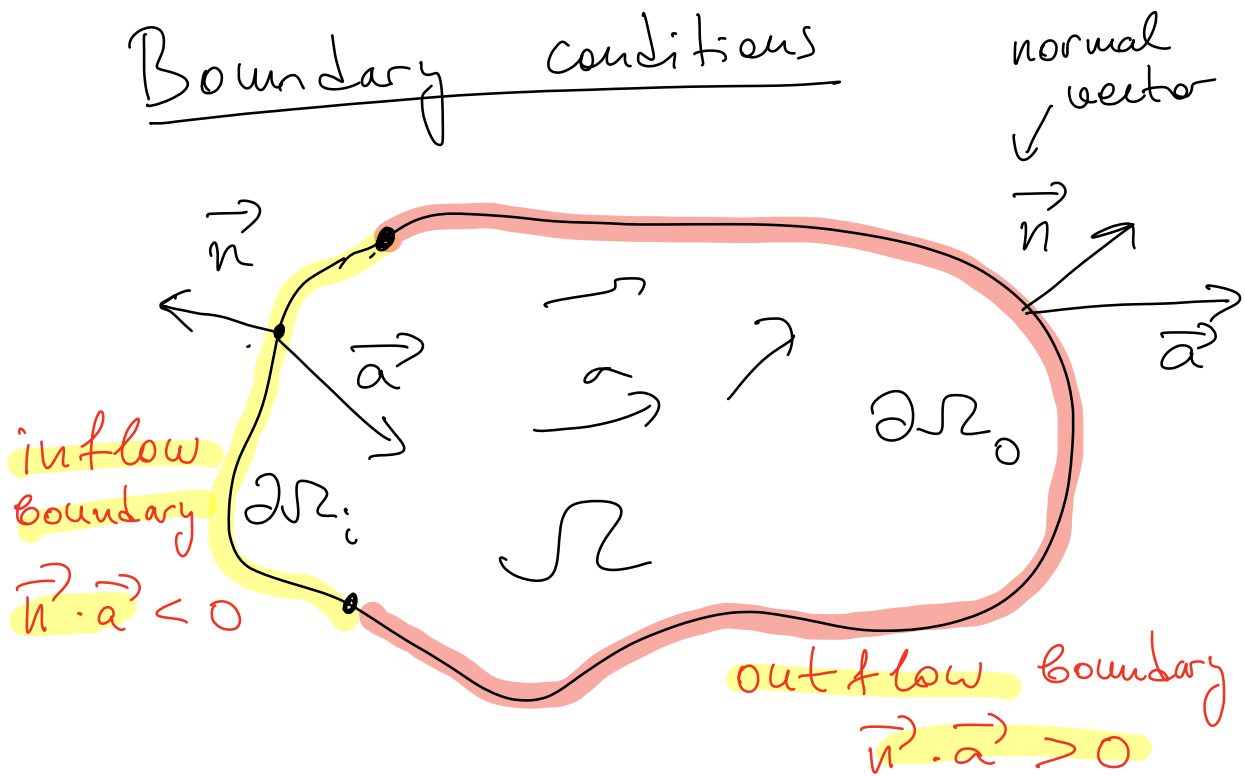 Boundary conditions
normal
vector
n⃗
n⃗
a⃗
a⃗
a
∂Ω₀
inflow
boundary
∂Ωᵢ
n⃗ · a⃗ < 0
Ω
outflow boundary
n⃗ · a⃗ > 0